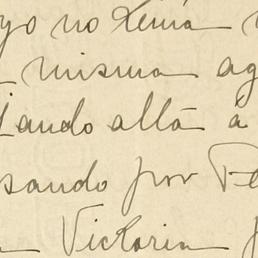 yo no tenía
misma ag
ando allá á
sando por Te
Victoria